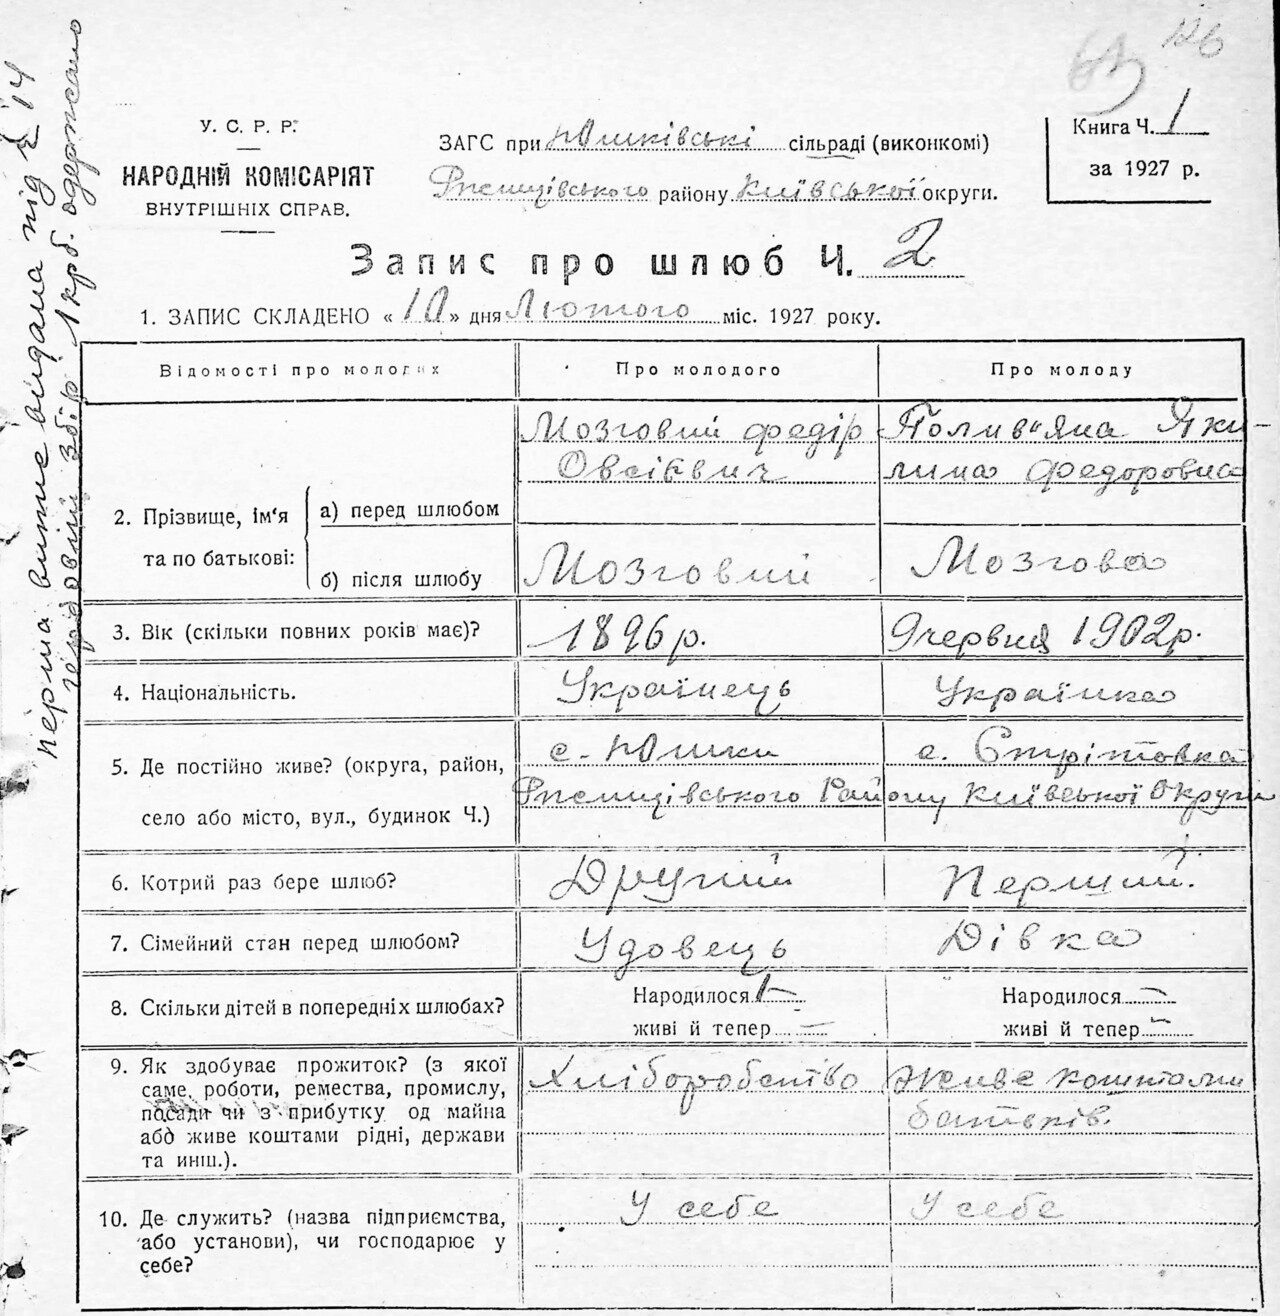 126
У. С. Р. Р.
НАРОДНІЙ КОМІСАРІЯТ
ВНУТРІШНІХ СПРАВ.
ЗАГС при Юшківські сільраді (виконкомі)
Ржищівського району Київської округи.
Книга Ч. 1
за 1927 р.
Запис про шлюб Ч. 2
1. ЗАПИС СКЛАДЕНО « 10 » дня Лютого міс. 1927 року.
перша витяг видана під № 14
гербовий збір 1 крб. одержано
Відомості про молодих
Про молодого
Про молоду
2. Прізвище, ім'я та по батькові:
а) перед шлюбом
Мозговий Федір
Овсієвич
Полив"яна Яки-
лина Федоровна
б) після шлюбу
Мозговий
Мозгова
3. Вік (скільки повних років має)?
1896 р.
9 червня 1902 р.
4. Національність.
Українець
Українка
5. Де постійно живе? (округа, район,
село або місто, вул., будинок Ч.)
с. Юшки
с. Стрітовка
Ржищівського Району Київської Округи
6. Котрий раз бере шлюб?
Другий
Перший.
7. Сімейний стан перед шлюбом?
Удовець
Дівка
8. Скільки дітей в попередніх шлюбах?
Народилося 1 –
живі й тепер –
Народилося –
живі й тепер –
9. Як здобуває прожиток? (з якої
саме роботи, ремества, промислу,
посади чи з прибутку од майна
або живе коштами рідні, держави
та инш.).
Хліборобство
Живе коштами
батьків.
10. Де служить? (назва підприємства,
або установи), чи господарює у
себе?
У себе
У себе